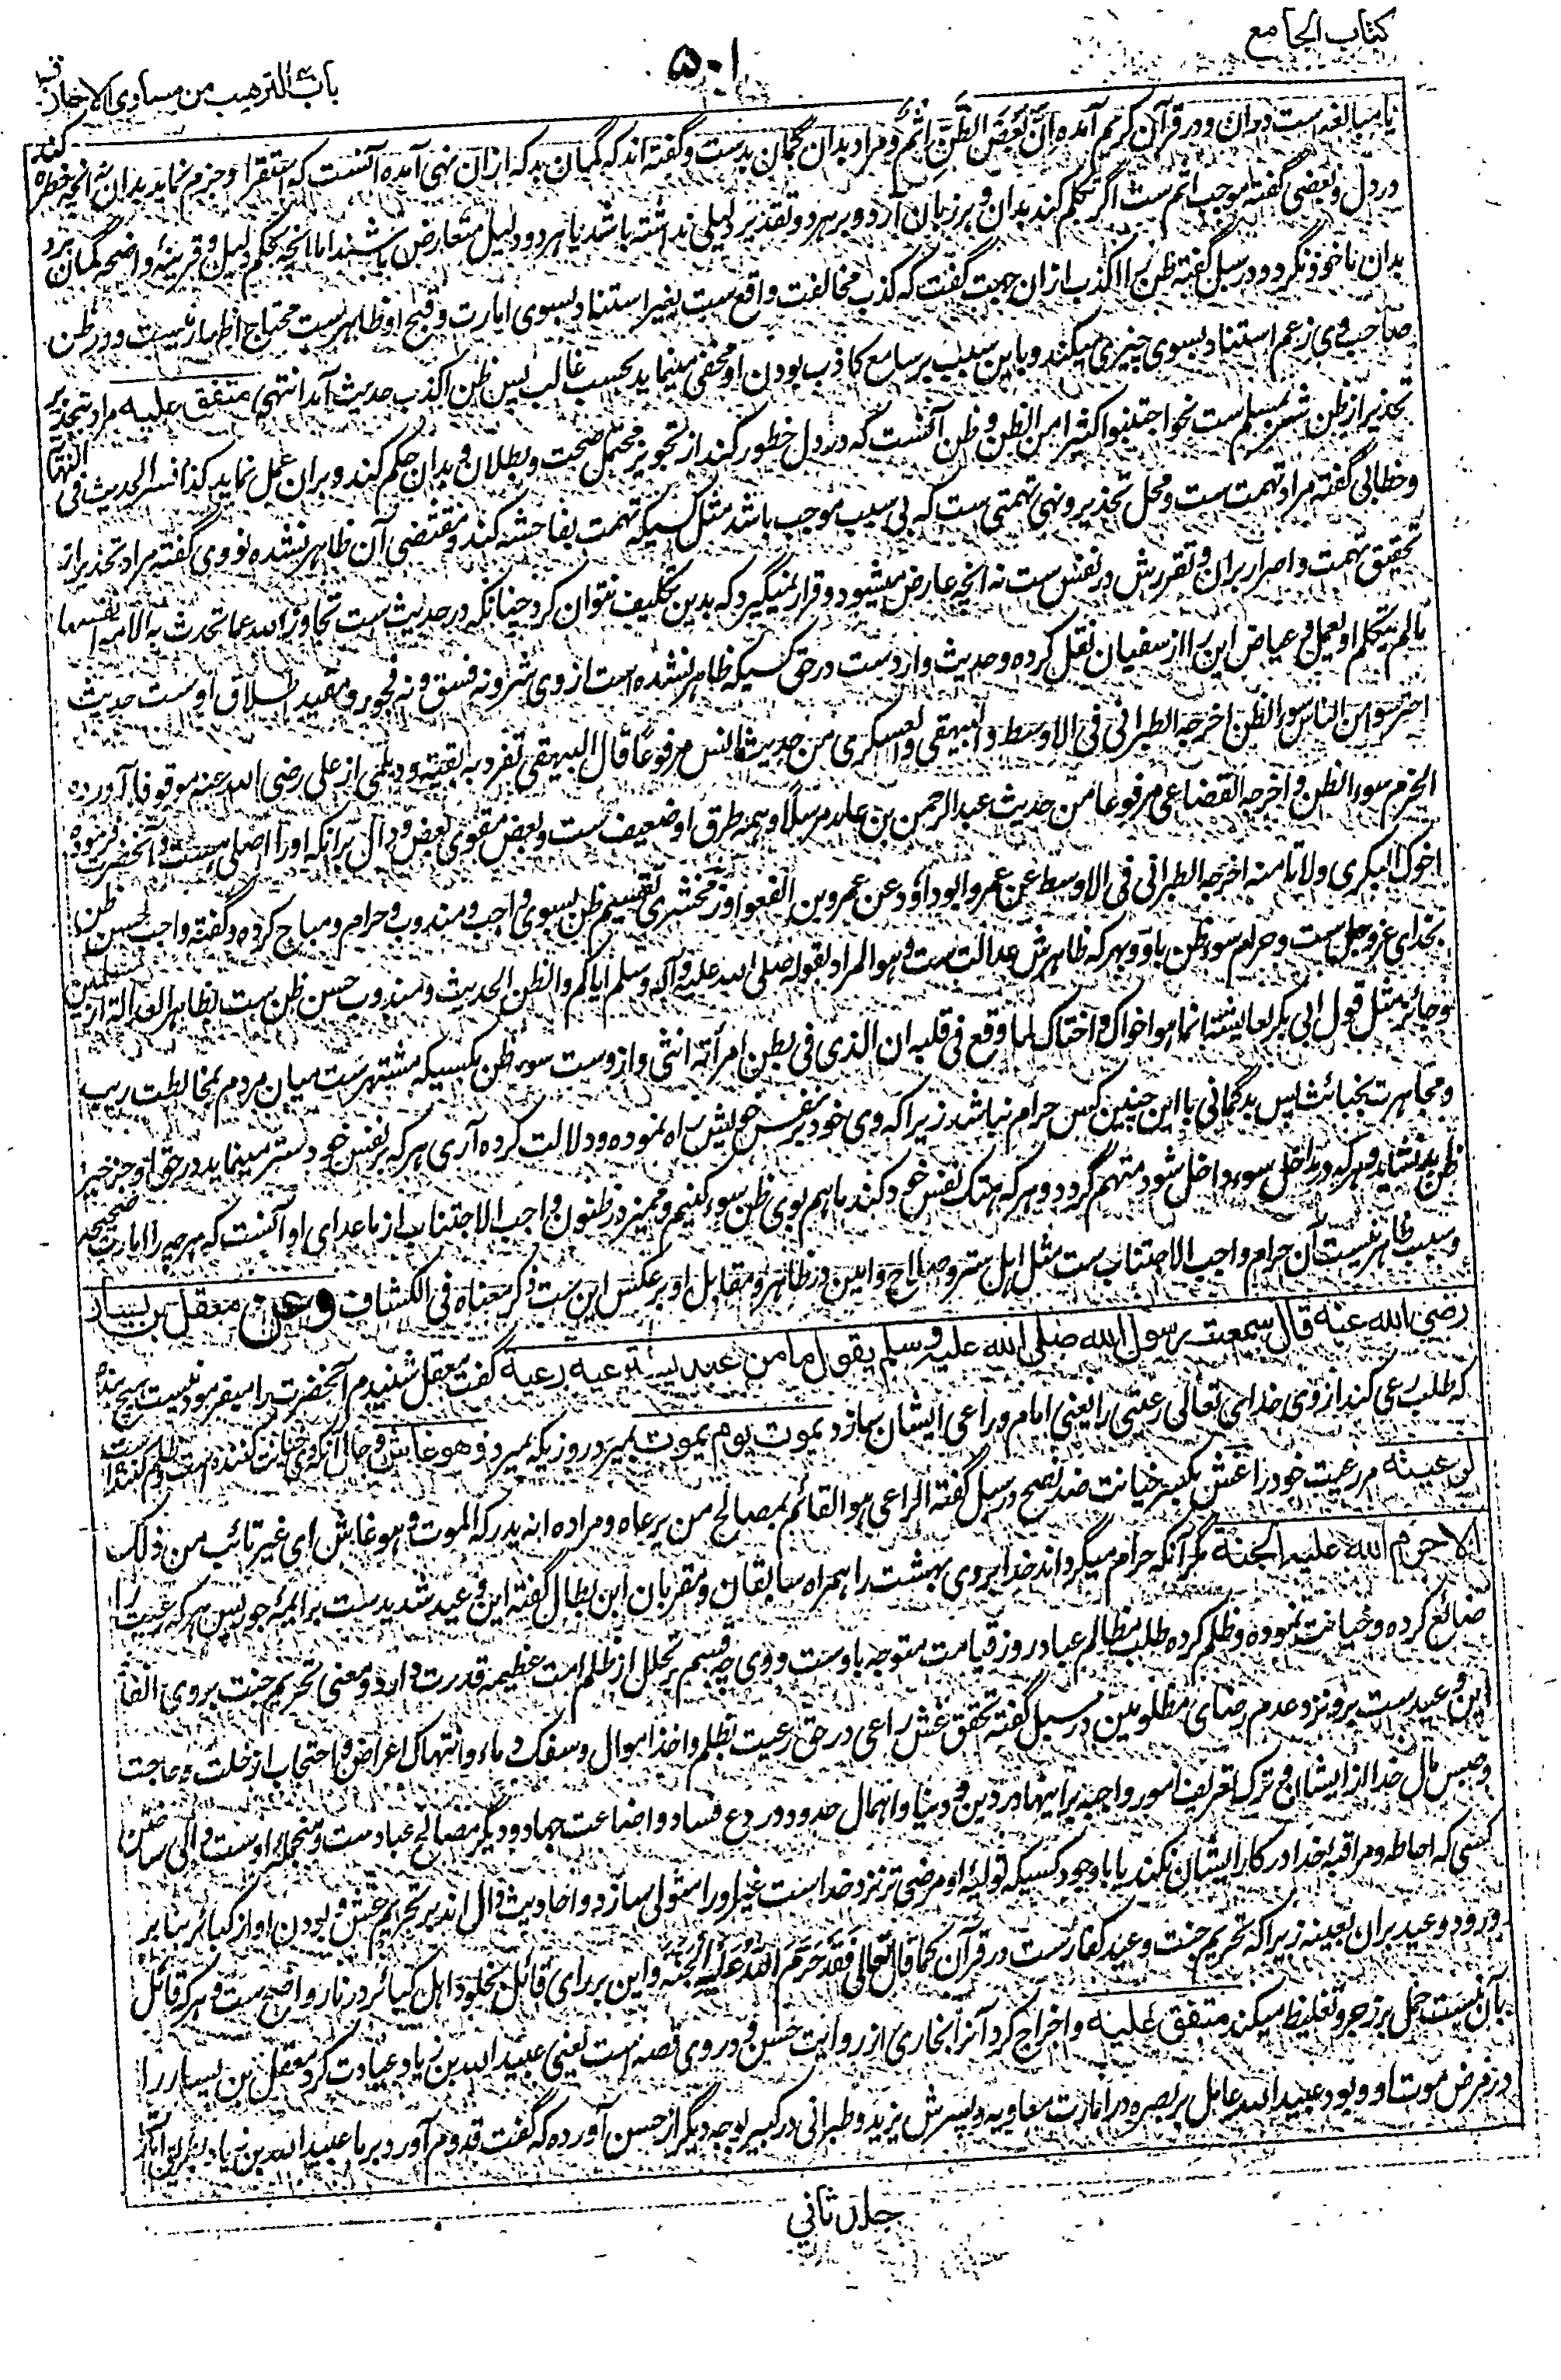 کتاب الجامع
۵۰۱
باب الترهیب من مساوی الاخلاق
یا مبالغه است دران و در قرآن کریم آمده ان بعض الظن اثم و مراد بدان گمان بدست و گفته اند که گمان بد که ازان نهی آمده آنست که استقرار و جزم نماید بدان نه آنچه خطره کند
در دل و بعضی گفته موجب اثم ست اگر تکلم کند بدان و بر زبان آرد و بر هر دو تقدیر دلیلی نداشته باشد یا هر دو دلیل متعارض باشند اما آنچه بحکم دلیل و قرینهٔ واضحه گمان برد
بدان ماخوذ نگردد و در سبل گفته ظن را اکذب ازان جهت گفت که کذب مخالفت واقع ست بغیر استناد بسوی امارت و قبح او ظاهرست محتاج اظهار نیست و در ظن
صاحب وی زعم استناد بسوی چیزی میکند و باین سبب بر سامع کاذب بودن او مخفی مینماید بحسب غالب پس ظن اکذب حدیث آمد انتهی متفق علیه مراد تحذیر
تحذیر از ظن شر بمسلم ست نحو اجتنبوا کثیرا من الظن و ظن آنست که در دل خطور کند از تجویز محتمل صحت و بطلان و بدان حکم کند و بران عمل نماید کذا فسر الحدیث فی النهایه
و خطابی گفته مراد تهمت ست و محل تحذیر و نهی تهمتی ست که بی سبب موجب باشد مثل کسیکه تهمت بفاحشه کند و مقتضی آن ظاهر نشده نووی گفته مراد تحذیر از
تحقیق تهمت و اصرار بران و تقررش در نفس ست نه آنچه عارض میشود و قرار نمیگیرد که بدین تکلیف نتوان کرد چنانکه در حدیث ست تجاوز الله عما تحدث به الامه انفسها
ما لم یتکلم او تعمل و عیاض این را از سفیان نقل کرده و حدیث وارد ست در حق کسیکه ظاهر نشده است از وی شر و نه فسق و نه فجور و مقید اطلاق اوست حدیث
احترسوا من الناس بسوء الظن اخرجه الطبرانی فی الاوسط و البیهقی و العسکری من حدیث انس مرفوعا قال البیهقی تفرد به بقیه و دیلمی از علی رضی الله عنه موقوفا آورده
الحزم سوء الظن و اخرجه القضاعی مرفوعا من حدیث عبد الرحمن بن عائذ مرسلا و همه طرق او ضعیف ست و بعض مقوی بعض و دال بر آنکه او را اصلی هست و آنحضرت فرموده
اخوک البکری ولا تامنه اخرجه الطبرانی فی الاوسط عن عمر و ابو داؤد عن عمرو بن الفغواء و زمخشری تقسیم ظن بسوی واجب و مندوب و حرام و مباح کرده و گفته واجب حسن ظن
بخدای عز و جل ست و حرام سوء ظن باو و بهر که ظاهرش عدالت ست و هو المراد بقوله صلی الله علیه و آله و سلم ایاکم و الظن الحدیث و مندوب حسن ظن ست بظاهر العدالة از مسلمین
و جائز مثل قول ابی بکر بعایشه انما هو اخواک و اختاک لما وقع فی قلبه ان الذی فی بطن امرأته انثی و ازوست سوء ظن بکسیکه مشتهرست میان مردم بمخالطت ریب
و مجاهرت بخبائث پس بدگمانی با این چنین کس حرام نباشد زیرا که وی خود بر نفس خویش راه نموده و دلالت کرده آری هر که بر نفس خود ستر مینماید در حق او جز خیر
ظن بد نشاید و هر که در مداخل سوء داخل شود متهم گردد و هر که هتک نفس خود کند ما هم بوی ظن سوء کنیم و ممیز در ظنون واجب الاجتناب از ما عدای او آنست که هر چه را امارت صحیحه
و سبب ظاهر نیست آن حرام و واجب الاجتناب ست مثل اهل ستر و صلاح و امین در ظاهر و مقابل او بر عکس این ست ذکر معناه فی الکشاف وعن معقل بن یسار
رضی الله عنه قال سمعت رسول الله صلی الله علیه وسلم یقول ما من عبد یسترعیه رعیة گفت معقل شنیدم آنحضرت را میفرمود نیست هیچ بنده
که طلب رعی کند از وی خدای تعالی رعیتی را یعنی امام و راعی ایشان سازد یموت یوم یموت بمیرد روزیکه بمیرد وهو غاش و حال آنکه وی خیانت کننده است و ظلم کننده است
لرعیته مر رعیت خود را غش بکسر خیانت ضد نصح در سبل گفته الراعی هو القائم بمصالح من یرعاه و مراده انه یدرکه الموت و هو غاش ای غیر تائب من ذلک
الا حرم الله علیه الجنة مگر آنکه حرام میگرداند خدا بروی بهشت را همراه سابقان و مقربان ابن بطال گفته این وعید شدیدست بر ائمهٔ جور پس هر که رعیت را
ضائع کرده و خیانت نموده و ظلم کرده طلب مظالم عباد روز قیامت متوجه باوست و وی چه قسم بر تحلل از ظلم امت عظیمه قدرت دارد و معنی تحریم جنت بر وی انفاذ
این وعیدست برو نزد عدم رضای مظلومین در سبل گفته تحقق غش راعی در حق رعیت بظلم و اخذ اموال و سفک دماء و انتهاک اعراض و احتجاب از خلت و حاجت
و حبس مال خدا از ایشان و ترک تعریف امور واجبه بر اینها در دین و دنیا و اهمال حدود و ردع فساد و اضاعت جهاد و دیگر مصالح عبادست و منجملهٔ اوست والی ساختن
کسی که احاطه و مراقبهٔ خدا در کار ایشان نکند یا با وجود کسیکه تولیهٔ او مرضی تر نزد خداست غیر او را متولی سازد و احادیث دال اند بر تحریم غش و بودن او از کبائر بنا بر
ورود وعید بران بعینه زیرا که تحریم جنت وعید کفارست در قرآن کما قال تعالی فقد حرم الله علیه الجنة و این بر رای قائل بخلود اهل کبائر در نار واضح ست و هر که قائل
بآن نیست حمل بر زجر و تغلیظ میکند متفق علیه و اخراج کرد آنرا بخاری از روایت حسن و در وی قصه است یعنی عبید الله بن زیاد عیادت کرد معقل بن یسار را
در مرض موت او و بود عبید الله عامل بر بصره در امارت معاویه و پسرش یزید و طبرانی در کبیر بوجه دیگر از حسن آورده که گفت قدوم آورد بر ما عبید الله بن زیاد
جلد ثانی